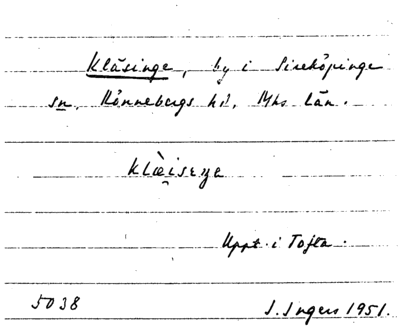 Kläsinge, by i Sireköpinge
sn, Rönnebergs hd, Mhs län.
Uppt. i Tofta.
5038 I. Ingers 1951.